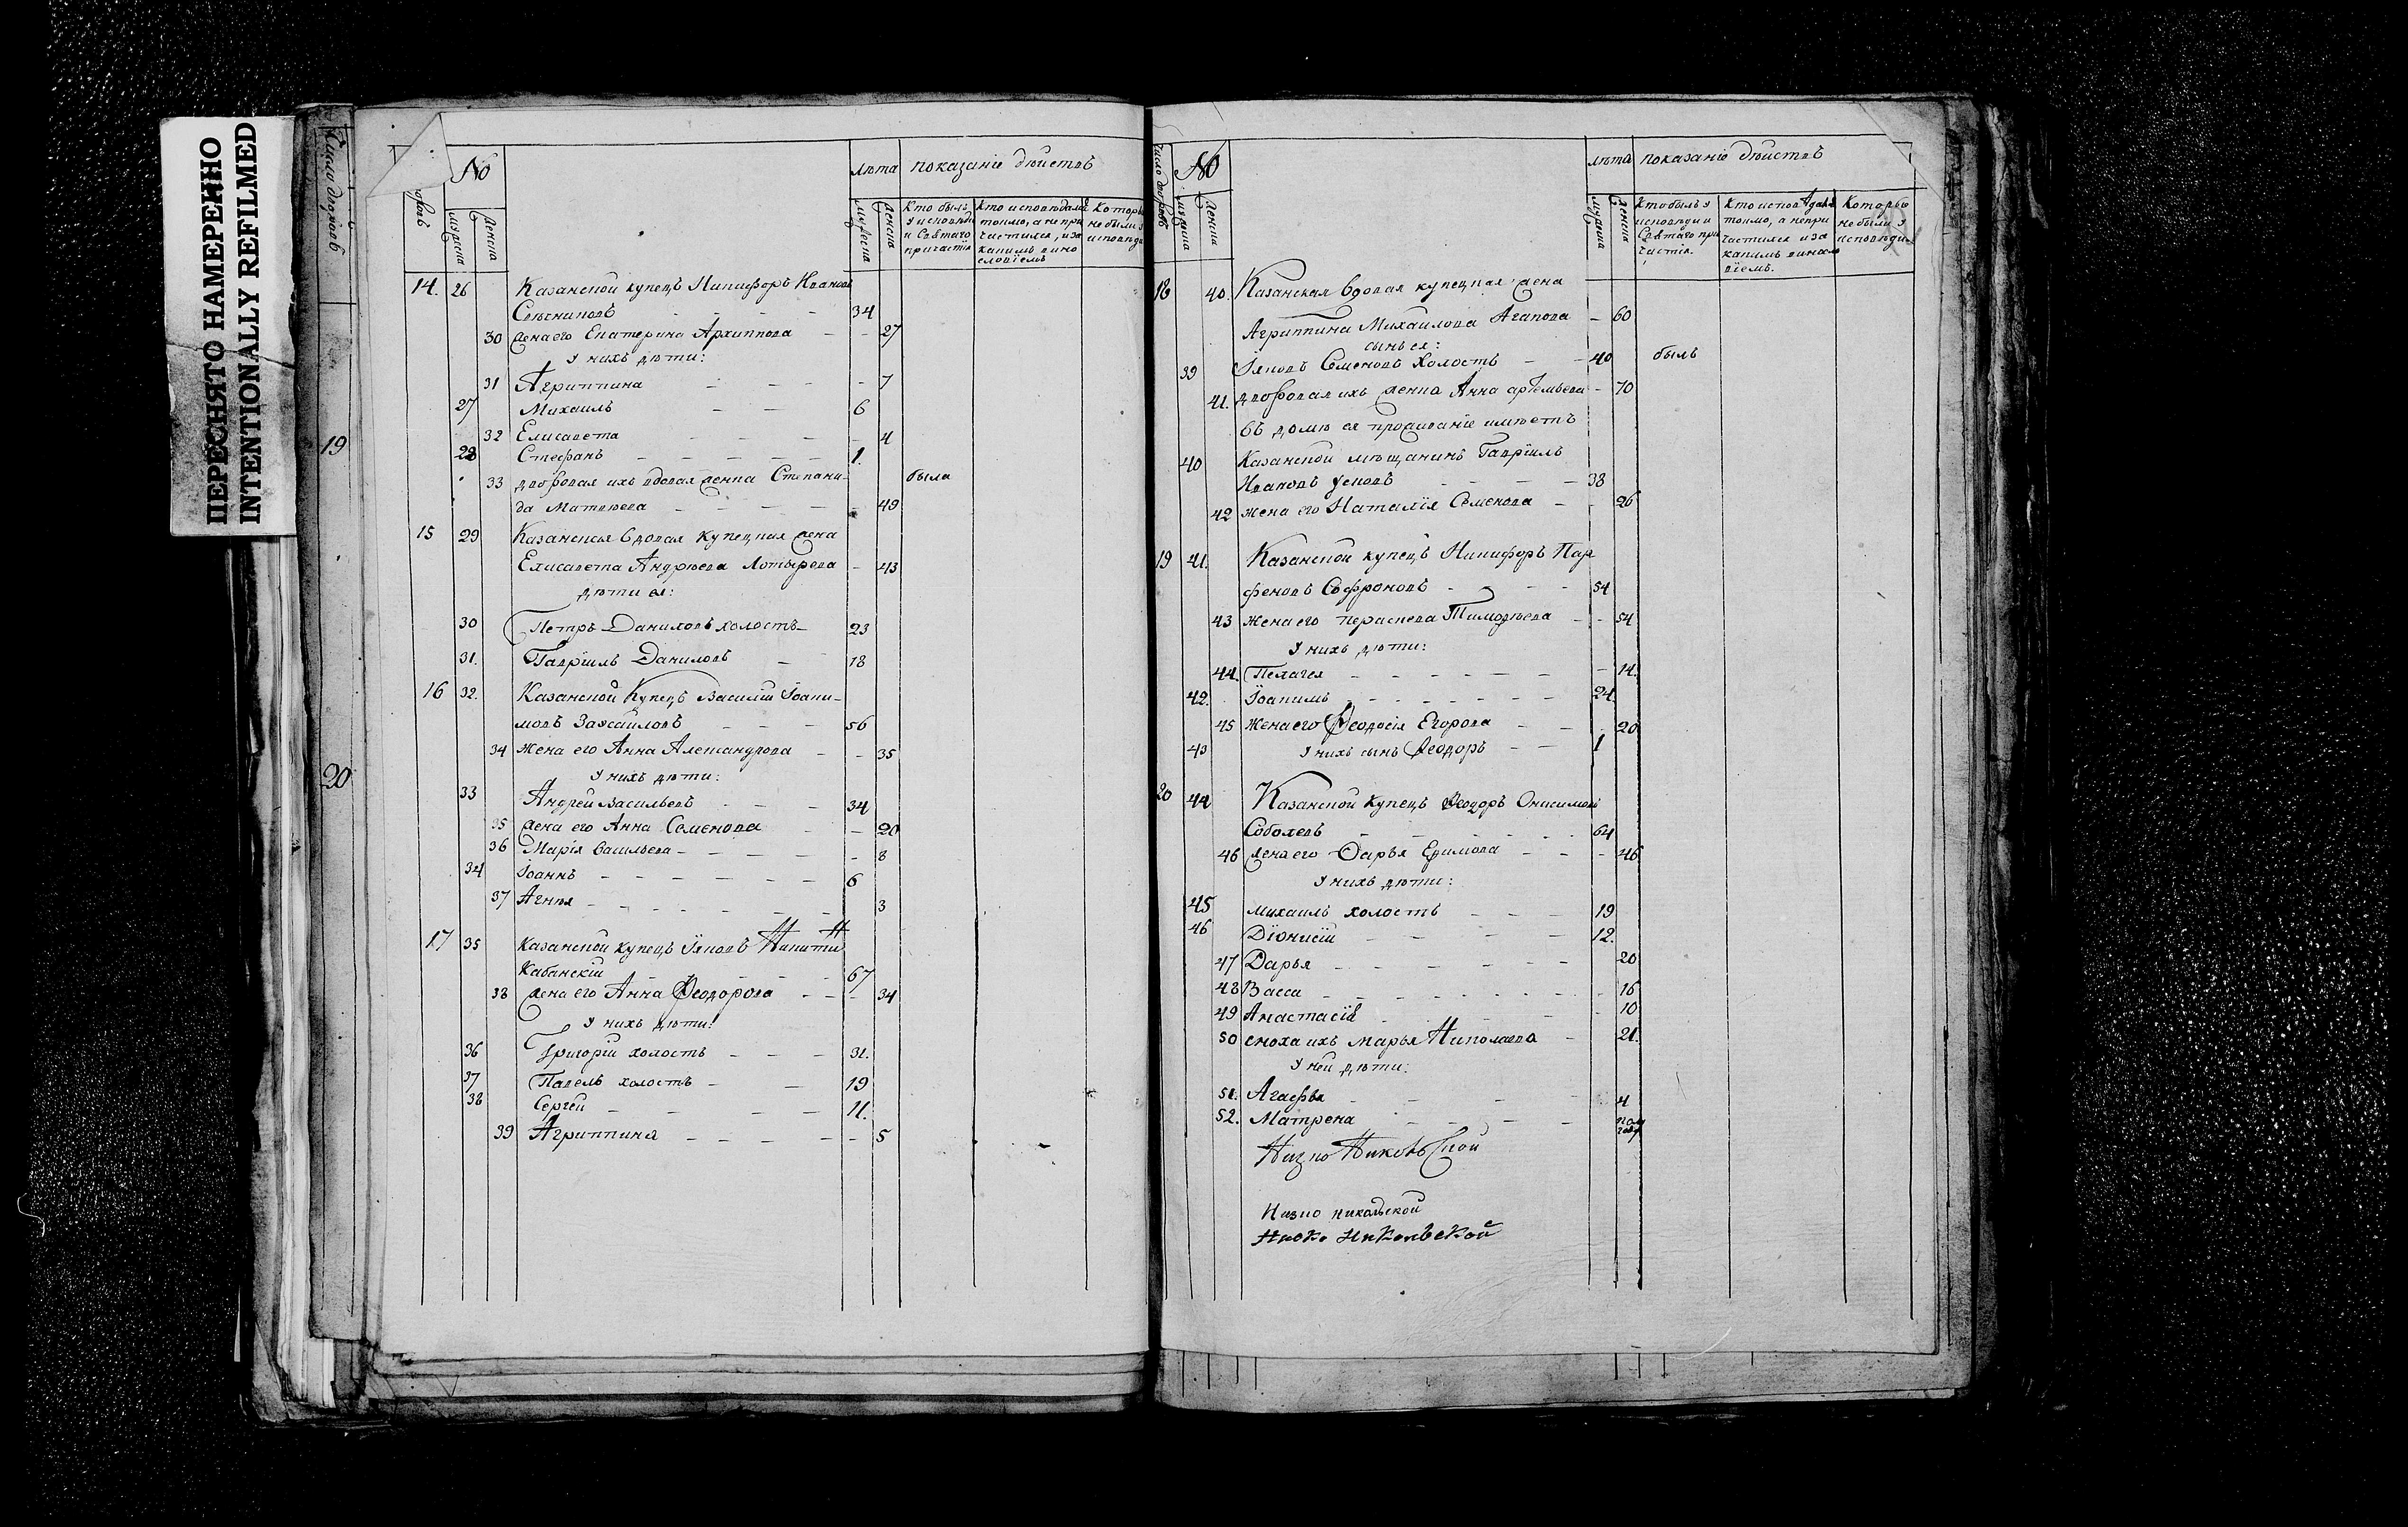 ПЕРЕСНЯТО НАМЕРЕННО
INTENTIONALLY REFILMED
Число дворовъ
19
20
№
лѣта показанiе дѣйствъ
мужеска женска
мужеска женска
Кто былъ у исповѣди и Святаго причастiя
Кто исповѣдался токмо, а не причастился, и за какимъ винословiемъ
Которые не были у исповѣди
14. 26 Казанской купецъ Никифоръ Ивановъ
34
30 жена его Екатерина Архиппова - - 27
у нихъ дѣти:
31 Агриппина - 7
27 Михаилъ 6
32 Елисавета - 4
28 Стефанъ 1.
33 дворовая ихъ вдовая женка Степани- была
да Матвѣева 49
15 29 Казанская вдовая купецкая жена
Елисавета Андрѣева - 43
дѣти ея:
30 Петръ Даниловъ холостъ 23
31. Гаврiилъ Даниловъ 18
16 32. Казанской Купецъ Василiй Iоаки-
мовъ 56
34 жена его Анна Александрова - 35
у нихъ дѣти:
33 Андрей Васильевъ 34
35 жена его Анна Семенова - 20
36 Марiя Васильева - 8
34 Iоаннъ 6
37 Агнiя 3
17 35 Казанской купецъ Iяковъ Никити
Кабанскiй 67
38 жена его Анна Феодорова - 34
у нихъ дѣти:
36 Григорiй холостъ 31.
37 Павелъ холостъ 19
38 Сергей 11.
39 Агриппина - 5
Число дворовъ
№
лѣта показанiе дѣйствъ
мужеска женска
мужеска женска
Кто былъ у исповѣди и Святаго причастiя.
Кто исповѣдался токмо, а не причастился и за какимъ винословiемъ.
Которые не были у исповѣди
18 40. Казанская вдовая купецкая жена
Агриппина Михайлова Агапова - 60
сынъ ея:
39 Iяковъ Семеновъ холостъ 40 былъ
41. дворовая ихъ женка Анна Артемьева - 70
въ домѣ ея проживанiе имѣетъ
40 Казанской мѣщанинъ Гаврiилъ
Ивановъ Усковъ 38
42 жена его Наталiя Семенова - 26
19 41. Казанской купецъ Никифоръ Пар
феновъ Софроновъ 54
43 жена его Параскева Тимофѣева - 54
у нихъ дѣти:
44. Пелагея - 14.
42. Iоакимъ 24.
45 жена его Феодосiя Егорова - 20
43 у нихъ сынъ Феодоръ 1
20 44 Казанской купецъ Феодоръ Онисимовъ
Соболевъ 64
46 жена его Дарья Ефимова - 46
у нихъ дѣти:
45 Михаилъ холостъ 19
46 Дiонисiй 12.
47 Дарья 20
48 Васса 16
49 Анастасiя 10
50 сноха ихъ Марья Николаева - 21.
у ней дѣти:
51. Агафья 4
52. Матрена пол году
Низко Никольской